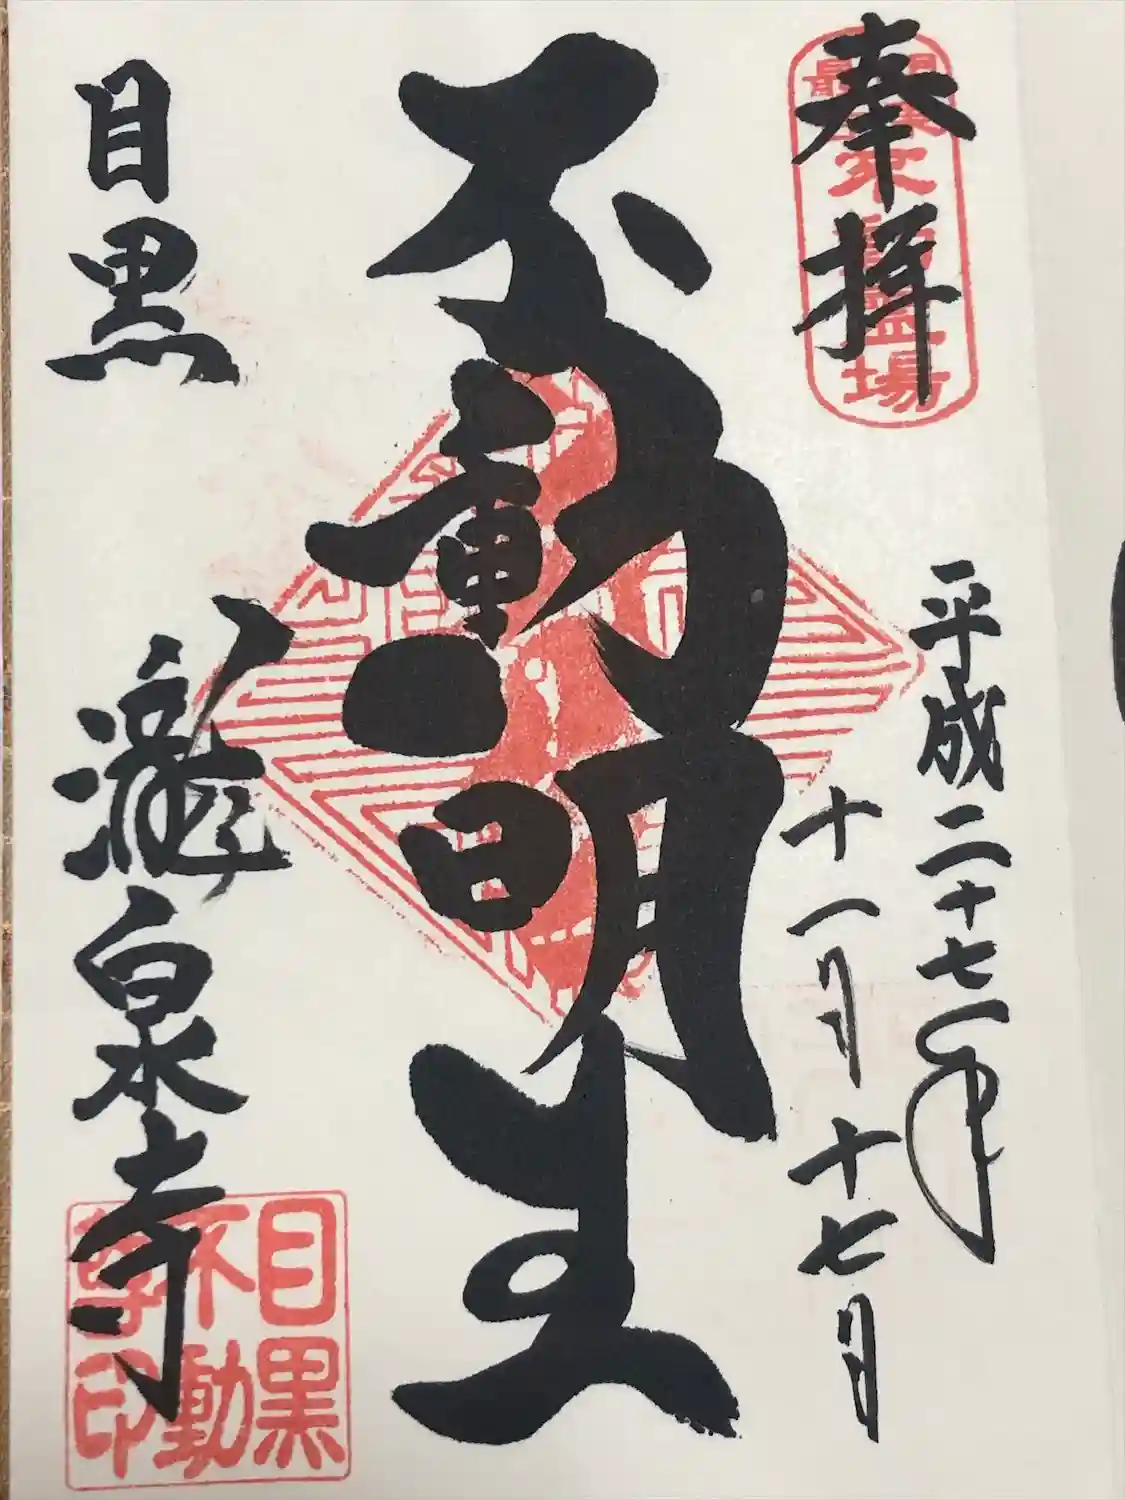 奉拝
関東最古不動霊場
平成二十七年
十一月十七日
不動明王
目黒
瀧泉寺
目黒
不動
尊印